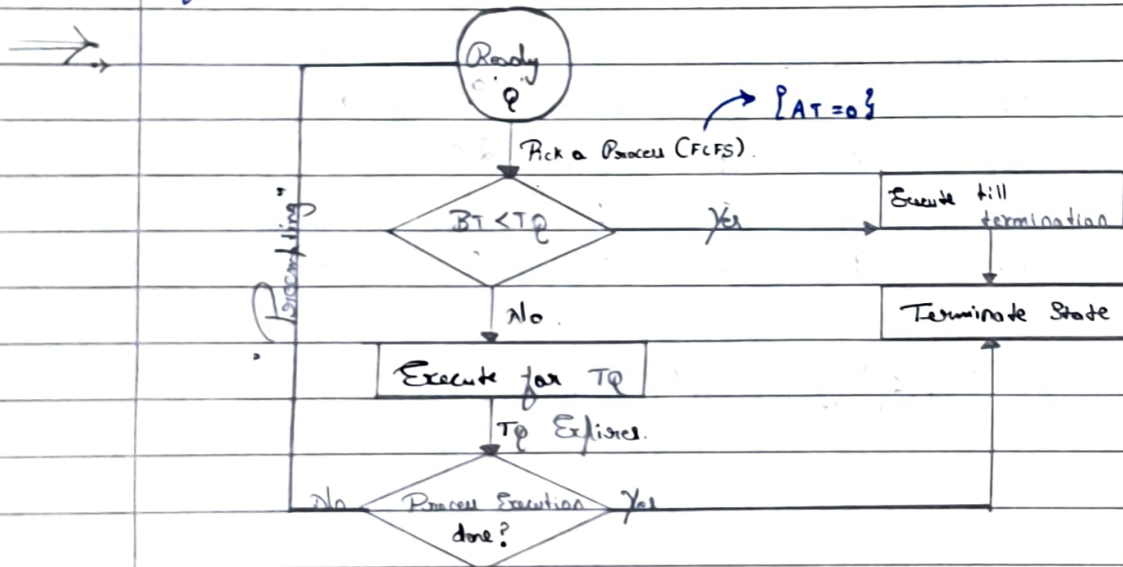 Ready
Q
{AT=0}
Pick a Process (FCFS).
BT < TQ
Yes
Execute till
termination
"Preempting"
No.
Terminate State
Execute for TQ
TQ Expires.
No
Process Execution
done?
Yes